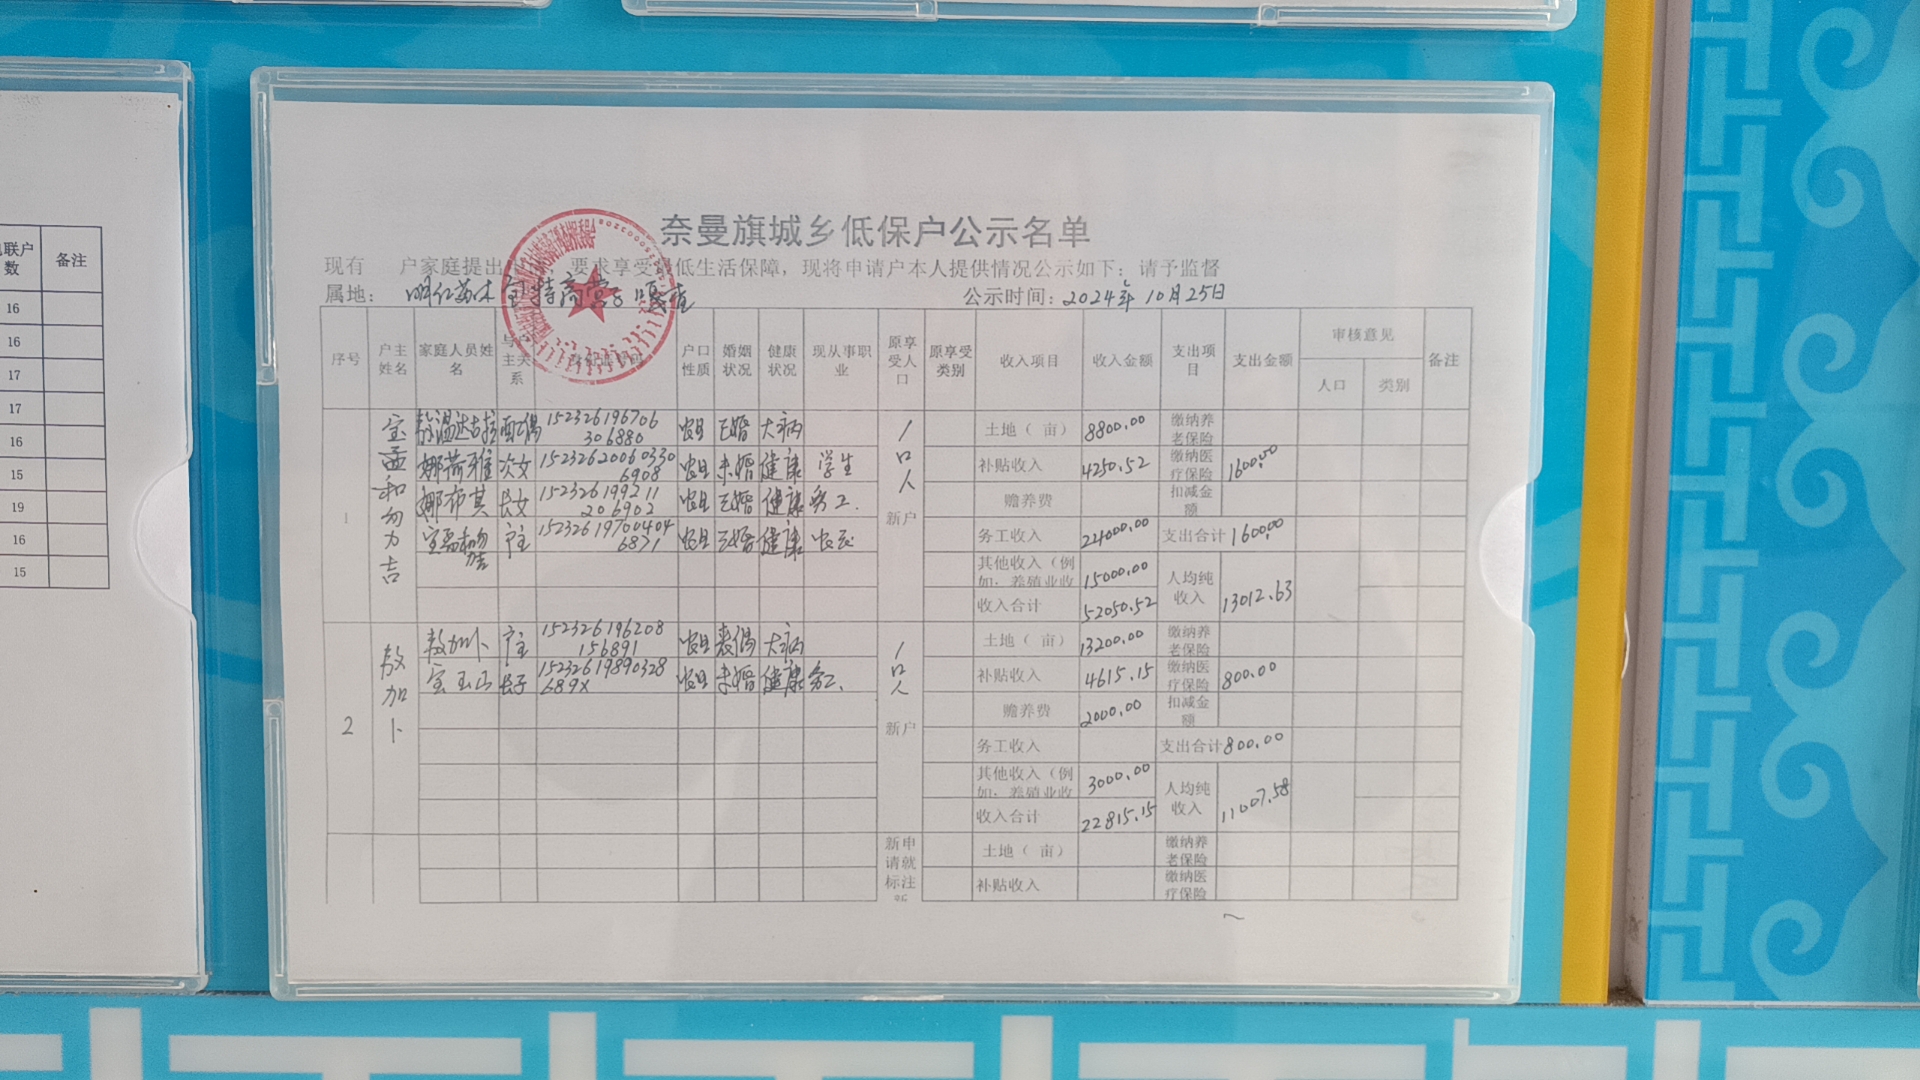 奈曼旗城乡低保户公示名单
现有 户家庭提出 , 要求享受最低生活保障，现将申请户本人提供情况公示如下：请予监督
属地： 公示时间：2024年10月25日
序号 户主姓名 家庭人员姓名 与户主关系 户口性质 婚姻状况 健康状况 现从事职业 原享受人口 原享受类别 收入项目 收入金额 支出项目 支出金额 审核意见 人口 类别 备注
1 配偶 152326196706306880 农业 已婚 大病 1口人 新户 土地（ 亩） 8800.00 缴纳养老保险
次女 152326200603306908 农业 未婚 健康 学生 补贴收入 4250.52 缴纳医疗保险 1600.00
娜布其 长女 152326199211206902 农业 已婚 健康 务工. 赡养费 扣减金额
户主 152326197004046871 农业 已婚 健康 农民 务工收入 24000.00 支出合计 1600.00
其他收入（例如：养殖业收 15000.00 人均纯收入 13012.63
收入合计 52050.52
2 敖加卜 敖加卜 户主 152326196208156891 农业 丧偶 大病 1口人 新户 土地（ 亩） 13200.00 缴纳养老保险
宝玉山 长子 15232619890328689X 农业 未婚 健康 务工. 补贴收入 4615.15 缴纳医疗保险 800.00
赡养费 2000.00 扣减金额
务工收入 支出合计 800.00
其他收入（例如：养殖业收 3000.00 人均纯收入 11007.58
收入合计 22815.15
新申请就标注新 土地（ 亩） 缴纳养老保险
补贴收入 缴纳医疗保险
联户数 备注
16
16
17
17
16
15
19
16
15